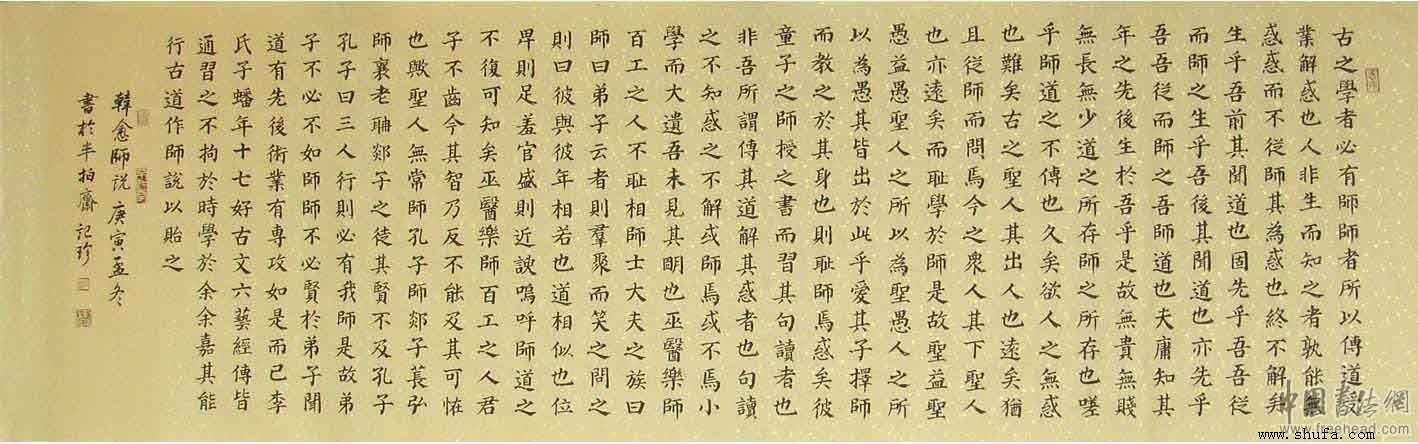 古之學者必有師師者所以傳道受
業解惑也人非生而知之者孰能無
惑惑而不從師其為惑也終不解矣
生乎吾前其聞道也固先乎吾吾從
而師之生乎吾後其聞道也亦先乎
吾吾從而師之吾師道也夫庸知其
年之先後生於吾乎是故無貴無賤
無長無少道之所存師之所存也嗟
乎師道之不傳也久矣欲人之無惑
也難矣古之聖人其出人也遠矣猶
且從師而問焉今之衆人其下聖人
也亦遠矣而耻學於師是故聖益聖
愚益愚聖人之所以為聖愚人之所
以為愚其皆出於此乎愛其子擇師
而教之於其身也則耻師焉惑矣彼
童子之師授之書而習其句讀者也
非吾所謂傳其道解其惑者也句讀
之不知惑之不解或師焉或不焉小
學而大遺吾未見其明也巫醫樂師
百工之人不耻相師士大夫之族曰
師曰弟子云者則羣聚而笑之問之
則曰彼與彼年相若也道相似也位
卑則足羞官盛則近諛嗚呼師道之
不復可知矣巫醫樂師百工之人君
子不齒今其智乃反不能及其可怪
也歟聖人無常師孔子師郯子萇弘
師襄老聃郯子之徒其賢不及孔子
孔子曰三人行則必有我師是故弟
子不必不如師師不必賢於弟子聞
道有先後術業有專攻如是而已李
氏子蟠年十七好古文六藝經傳皆
通習之不拘於時學於余余嘉其能
行古道作師說以貽之
韓愈師說 庚寅孟冬
書於半柏齋記珍
中国书法網
www.freehead.com
www.shufa.com